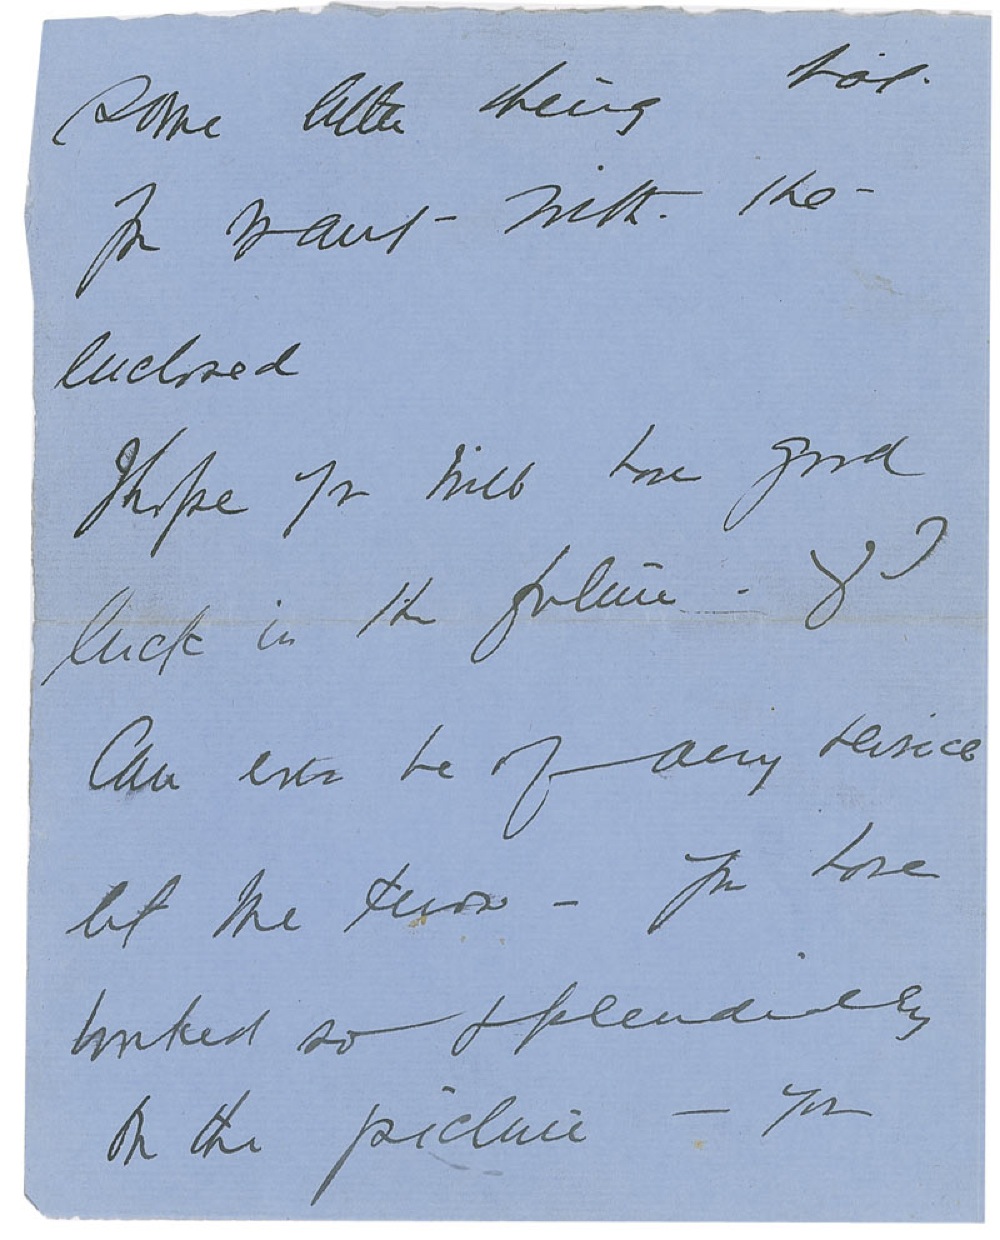 some little thing
you want with the
enclosed
I hope you will have good
luck in the future - If I
can ever be of any service
let me know - you have
worked so splendidly
on the picture - you